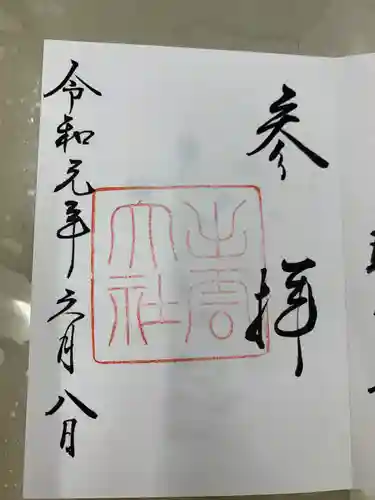 参拝
出雲大社
令和元年六月八日